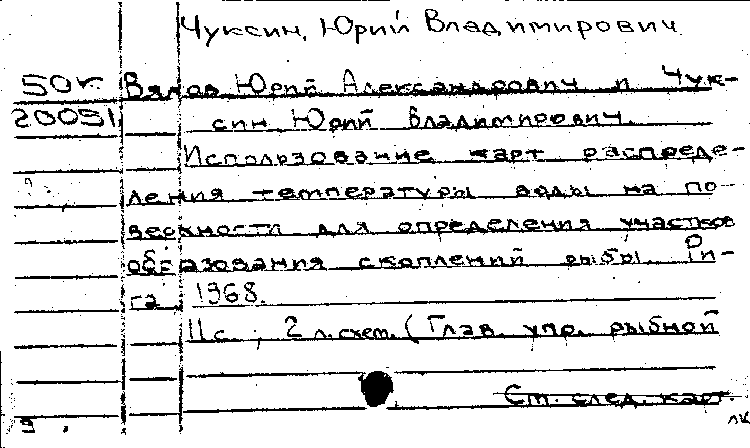 Чуксин, Юрий Владимирович
50к Вялов Юрий Александрович и Чук-
20051 син Юрий Владимирович.
Использование карт распреде-
ления температуры воды на по-
верхности для определения участков
образования скоплений рыбы. Ри-
га, 1968.
11 с.; 2 л. схем. (Глав. упр. рыбной
См. след. карт.